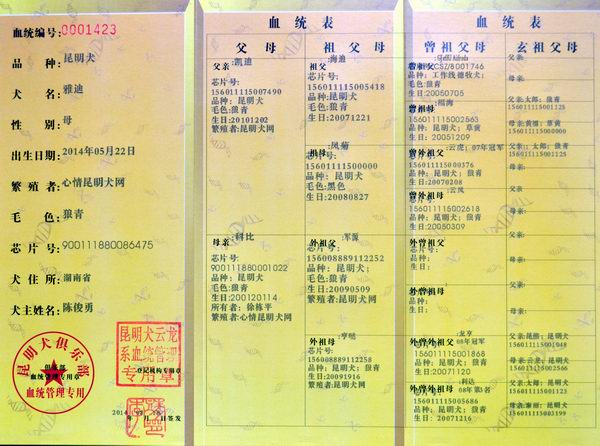 血统编号:0001423
品 种: 昆明犬
犬 名: 雅迪
性 别: 母
出生日期: 2014年05月22日
繁 殖 者: 心情昆明犬网
毛 色: 狼青
芯 片 号: 900111880086475
犬 住 所: 湖南省
犬主姓名: 陈俊勇
昆明犬俱乐部
血统管理专用章
血统管理专用
昆明犬云龙
系血统管理
专用章
登记机构专用章
2014
年 月 日签发
血 统 表
父 母
祖 父 母
父亲:凯迪
芯片号:
156011115007490
品种: 昆明犬
毛色:狼青
生日:20101202
繁殖者:昆明犬网
祖父:海迪
芯片号:
156011115005418
品种: 昆明犬
毛色:狼青
生日:20071221
祖母:凤菊
芯片号:
15601111500000
品种: 昆明犬
毛色:黑色
生日:20080827
母亲:科比
芯片号:
900111880001022
品种: 昆明犬
毛色:狼青
生日:200120114
所有者: 徐栋平
繁殖者:心情昆明犬网
外祖父:军源
芯片号:
156008889112252
品种: 昆明犬;
毛色:狼青
生日:20090509
繁殖者:昆明犬网
外祖母:亨哒
芯片号:
156008889112258
品种: 昆明犬
毛色:狼青
生日:20091916
繁殖者:昆明犬网
血 统 表
曾 祖 父 母
玄 祖 父 母
曾祖父
品种: 工作线德牧犬;
狼青
生日: 20050705
曾祖母:福海
156011115002563
品种: 昆明犬; 草黄
生日: 20051209
曾外祖父:云虎; 07年冠军
15601111500376
品种: 昆明犬; 狼青
生日: 20070208
曾外祖母:云凤
156011115002618
品种: 昆明犬; 狼青
生日: 20050309
外曾祖父
芯片号:
品种:
生日:
外曾祖母
:
品种:
生日:
外曾外祖父:龙亨
08年冠军
156011115001868
品种: 昆明犬; 狼青
生日: 20071120
外曾外祖母:利达
08年第3名
156011115005686
品种: 昆明犬; 狼青
生日: 20071216
父亲:
母亲:
父亲:太郎; 狼青
156011115001125
母亲:黄福; 草黄
156011115000000
父亲: 太郎; 狼青
156011115001125
母亲:
父亲:
母亲:
父亲:
母亲:
父亲:
母亲:
父亲:昆熊; 昆明犬
母亲:云龙; 昆明犬
父亲:太郎; 昆明犬
母亲:泰丽; 昆明犬